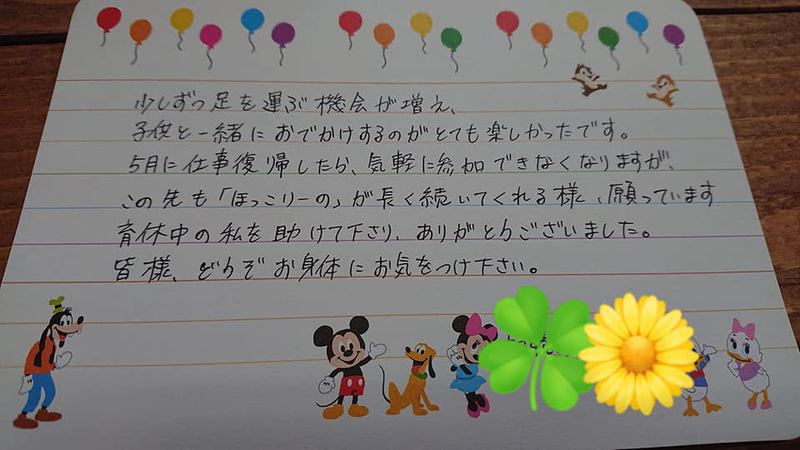 少しずつ足を運ぶ機会が増え、
子供と一緒におでかけするのがとても楽しかったです。
5月に仕事復帰したら、気軽に参加できなくなりますが、
この先も「ほっこりーの」が長く続いてくれる様、願っています
育休中の私を助けて下さり、ありがとうございました。
皆様、どうぞお身体にお気をつけ下さい。